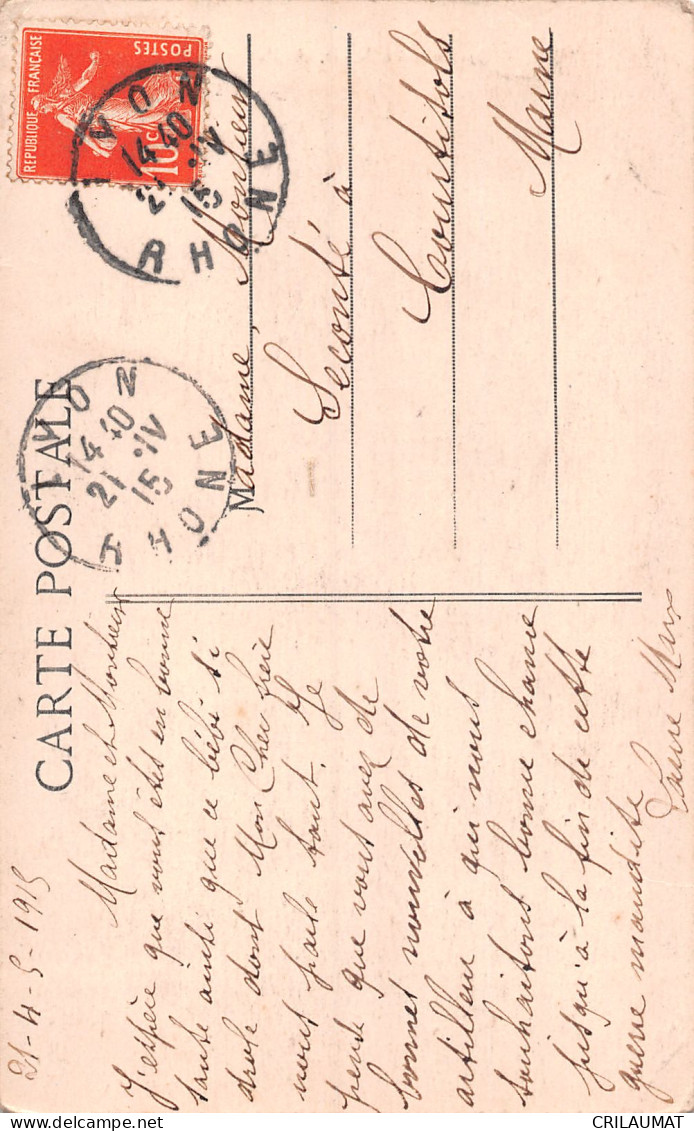 CARTE POSTALE
REPUBLIQUE FRANÇAISE
POSTES
10c
LYON
14 40
21 IV
15
RHONE
LYON
14 40
21 IV
15
RHONE
Madame, Monsieur
Seconté à
Courtisols
Marne
21-4-5-1915
Madame et Monsieur
J'espère que vous êtes en bonne
santé ainsi que ce bébé si
drole dont Mon Cher frère
nous parle tant. Je
pense que vous avez de
bonnes nouvelles de votre
artilleur à qui nous
souhaitons bonne chance
jusqu'à la fin de cette
guerre maudite
CRILAUMAT